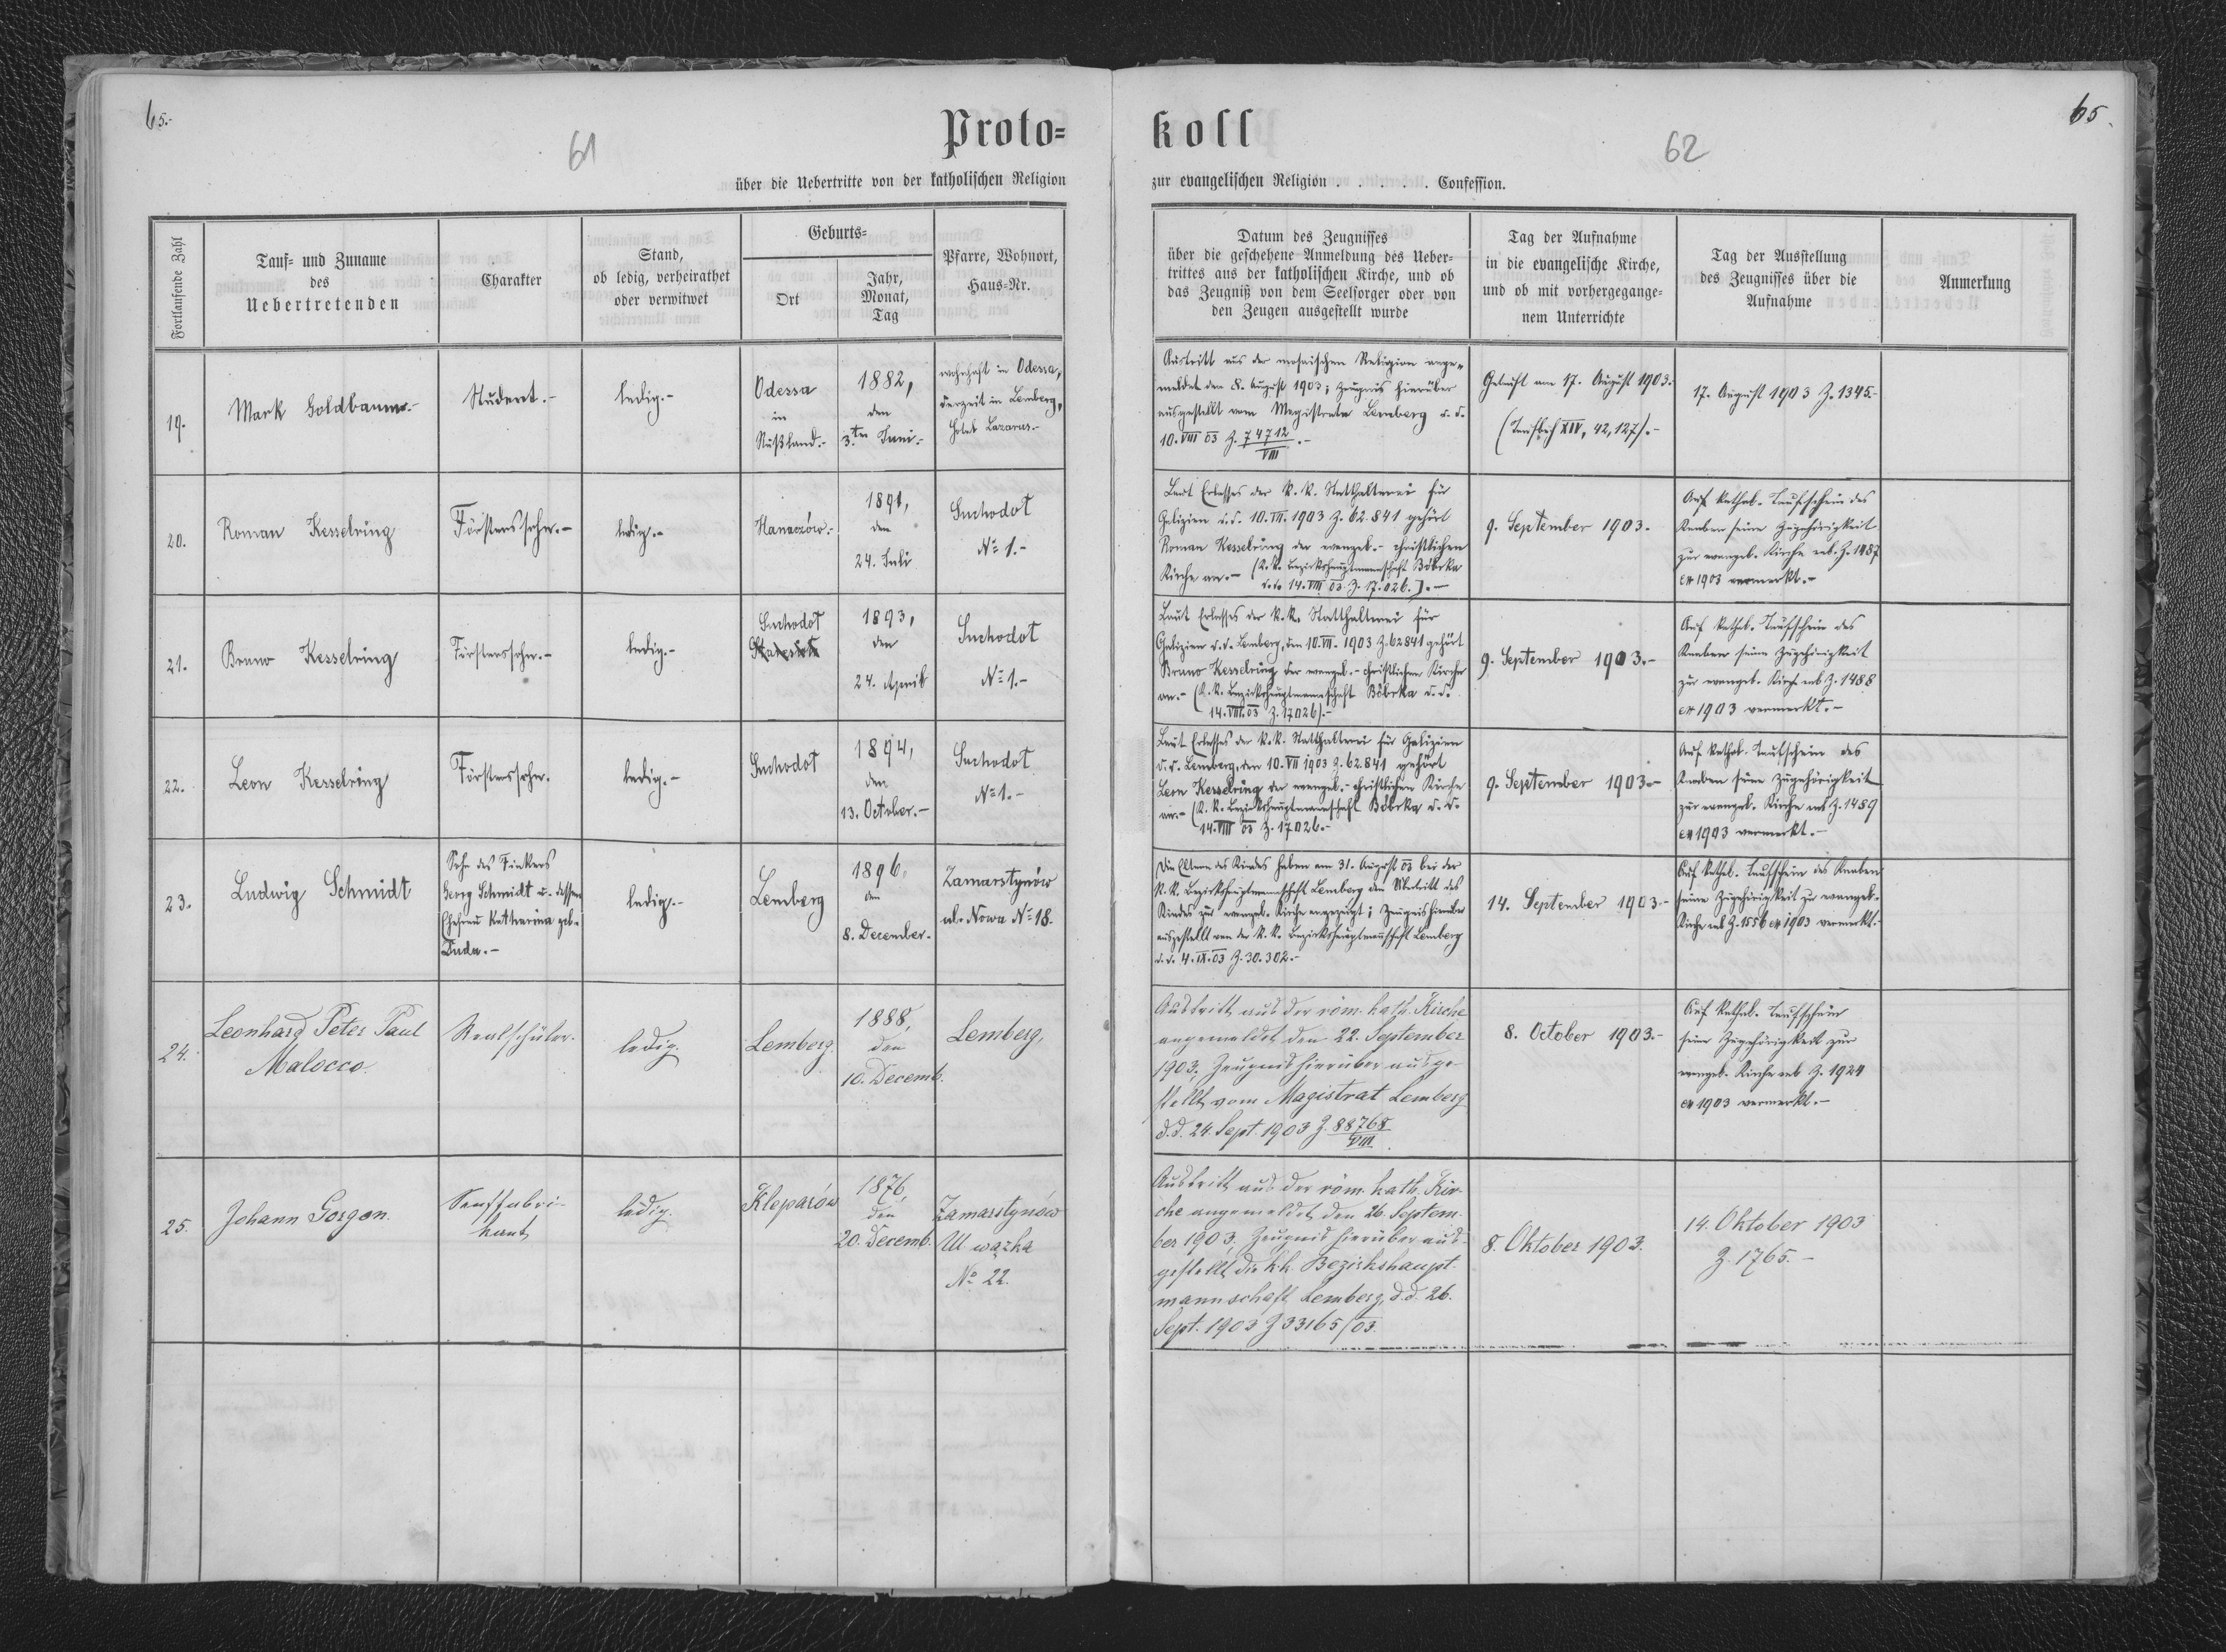 65.-
61
Proto=
über die Uebertritte von der katholischen Religion
Fortlaufende Zahl
Tauf= und Zuname
des
Uebertretenden
Charakter
Stand,
ob ledig, verheirathet
oder verwitwet
Geburts=
Ort
Jahr,
Monat,
Tag
Pfarre, Wohnort,
Haus=Nr.
19.
Mark Goldbaum.-
Student.-
ledig.-
Odessa
in
Rußland.-
1882,
den
3.ten Juni.-
wohnhaft in Odessa,
derzeit in Lemberg,
Hotel Lazarus.-
20.
Roman Kesselring
Försterssohn.-
ledig.-
Hanaczów.-
1891,
den
24. Juli
Suchodoł
No 1.-
21.
Bruno Kesselring
Försterssohn.-
ledig.-
Suchodoł
1893,
den
24. April
Suchodoł
No 1.-
22.
Leon Kesselring
Försterssohn.
ledig.-
Suchodoł
1894,
den
13. October.-
Suchodoł
No 1.-
23.
Ludwig Schmidt
Sohn des
Georg Schmidt u. dessen
Ehefrau Katharina geb.
Duda.-
ledig.-
Lemberg
1896,
den
8. December.-
Zamarstynów
ul. Nowa No 18.
24.
Leonhard Peter Paul
Malocco.
Realschüler.
ledig.
Lemberg.
1888,
den
10. Decemb.
Lemberg,
25.
Johann Gorgon.
Senffabri-
kant
ledig.
Kleparów
1876,
den
20. Decemb.
Zamarstynów
Ul wązka
No 22.
koll
62
65.
zur evangelischen Religion . . . . . . Confession.
Datum des Zeugnisses
über die geschehene Anmeldung des Ueber=
trittes aus der katholischen Kirche, und ob
das Zeugniß von dem Seelsorger oder von
den Zeugen ausgestellt wurde
Tag der Aufnahme
in die evangelische Kirche,
und ob mit vorhergegange=
nem Unterrichte
Tag der Ausstellung
des Zeugnisses über die
Aufnahme
Anmerkung
Austritt aus der mosaischen Religion ange-
meldet den 8. August 1903; Zeugnis hierüber
ausgestellt vom Magistrate Lemberg d. d.
10. VIII 03 Z. 74712/VIII.-
Getauft am 17. August 1903.
(Taufbuch XIV, 42, 127).-
17. August 1903 Z. 1345.-
Laut Erlasses der k. k. Statthalterei für
Galizien d. d. 10. VII. 1903 Z. 62.841 gehört
Roman Kesselring der evangel.- christlichen
Kirche an.- (k. k. Bezirkshauptmannschaft Bóbrka
d. d. 14. VIII 03 Z. 17.026.).-
9. September 1903.-
Auf kathol. Taufschein des
Knaben seine Zugehörigkeit
zur evangel. Kirche sub Z. 1487
ex 1903 vermerkt.-
Laut Erlasses der k. k. Statthalterei für
Galizien d. d. Lemberg, den 10. VII. 1903 Z. 62841 gehört
Bruno Kesselring der evangel.- christlichen Kirche
an.- (k. k. Bezirkshauptmannschaft Bóbrka d. d.
14. VIII. 03 Z. 17026).-
9. September 1903.-
Auf kathol. Taufschein des
Knaben seine Zugehörigkeit
zur evangel. Kirche sub Z. 1488
ex 1903 vermerkt.-
Laut Erlasses der k. k. Statthalterei für Galizien
d. d. Lemberg, den 10. VII 1903 Z. 62.841 gehört
Leon Kesselring der evangel.- christlichen Kirche
an.- (k. k. Bezirkshauptmannschaft Bóbrka d. d.
14. VIII 03 Z. 17026.-
9. September 1903.-
Auf kathol. Taufschein des
Knaben seine Zugehörigkeit
zur evangel. Kirche sub Z. 1489
ex 1903 vermerkt.-
Die Eltern des Kindes haben am 31. August 03 bei der
k. k. Bezirkshauptmannschaft Lemberg den Übertritt des
Kindes zur evangel. Kirche angezeigt; Zeugnis hierüber
ausgestellt von der k. k. Bezirkshauptmannschaft Lemberg
d. d. 4. IX. 03 Z. 30.302.-
14. September 1903.-
Auf kathol. Taufschein des Knaben
seine Zugehörigkeit zur evangel.
Kirche sub Z. 1556 ex 1903 vermerkt.-
Austritt aus der röm. kath. Kirche
angemeldet den 22. September
1903; Zeugnis hierüber ausge-
stellt vom Magistrat Lemberg
d. d. 24. Sept. 1903 Z. 88768/VIII.
8. October 1903.-
Auf kathol. Taufschein
seine Zugehörigkeit zur
evangel. Kirche sub Z. 1924
ex 1903 vermerkt.-
Austritt aus der röm. kath. Kir-
che angemeldet den 26. Septem-
ber 1903. Zeugnis hierüber aus-
gestellt die k. k. Bezirkshaupt-
mannschaft Lemberg, d. d. 26.
Sept. 1903 Z 33165/03.
8. Oktober 1903.
14. Oktober 1903
Z. 1765.-